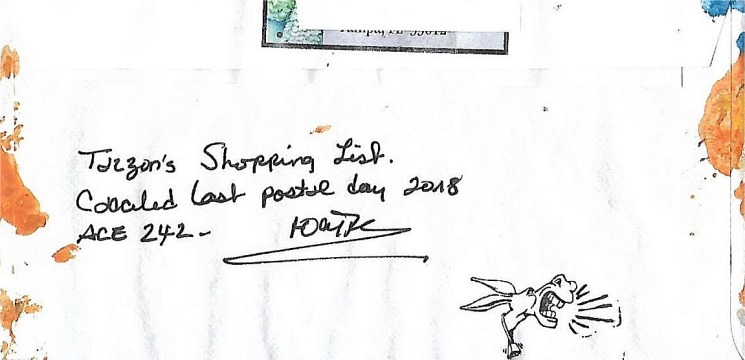 Tampa, FL 33612
Tarzon's Shopping List.
Cancaled last postal day 2018
ACE 242-